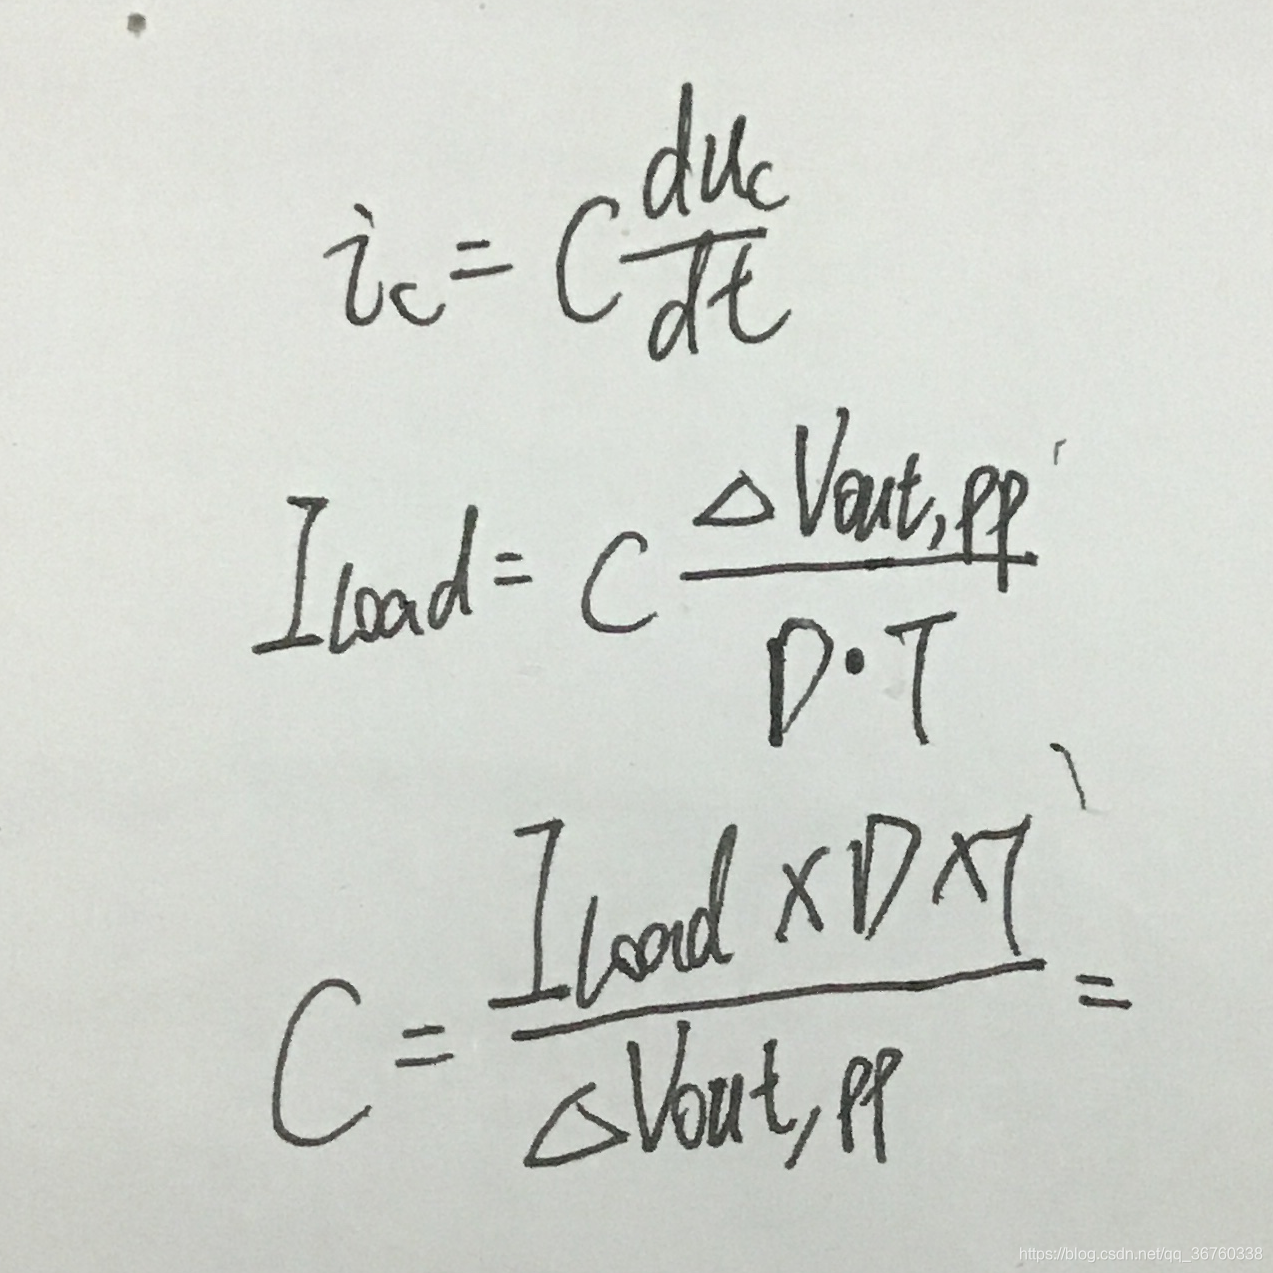 i_c = C du_c/dt
I_Load = C ΔVout,pp / D·T
C = I_Load × D × T / ΔVout,pp =
https://blog.csdn.net/qq_36760338